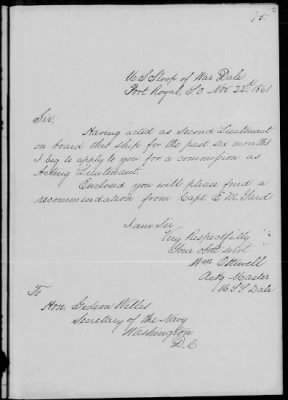 15
U.S Sloop of War Dale
Port Royal, S.C Nov. 22d, 1861
Sir,
Having acted as Second Lieutenant
on board this ship for the past six months
I beg to apply to you for a commission as
Acting Lieutenant.
Enclosed you will please find a
recommendation from Capt. E. M.
I am Sir
Very Respectfully
Your obdt servt
Wm Ottiwell
Actg Master
U.S.S Dale
To
Hon. Gideon Welles
Secretary of the Navy
Washington
D.C.